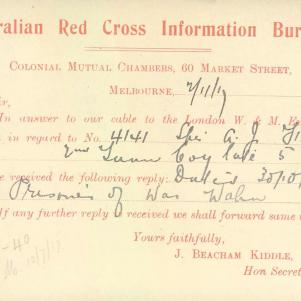 ralian Red Cross Information Bur
COLONIAL MUTUAL CHAMBERS, 60 MARKET STREET,
MELBOURNE, 7/11/17
ir,
In answer to our cable to the London W. & M. B
in regard to No. 4141 A. J.
2nd Tunn Coy late 5
ve received the following reply: Dated 30/10/
Prisoner of War Wahn
If any further reply is received we shall forward same
Yours faithfully,
J. BEACHAM KIDDLE,
Hon Secret